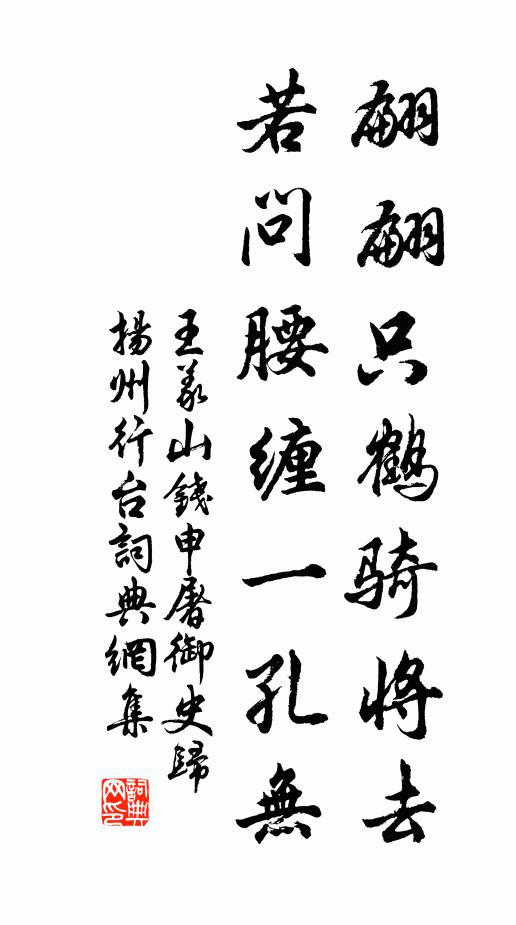 翩翩只鶴骑將去
若问腰缠一孔無
王義山錢申屠御史歸
揚州行台詞典網集
詞典网印